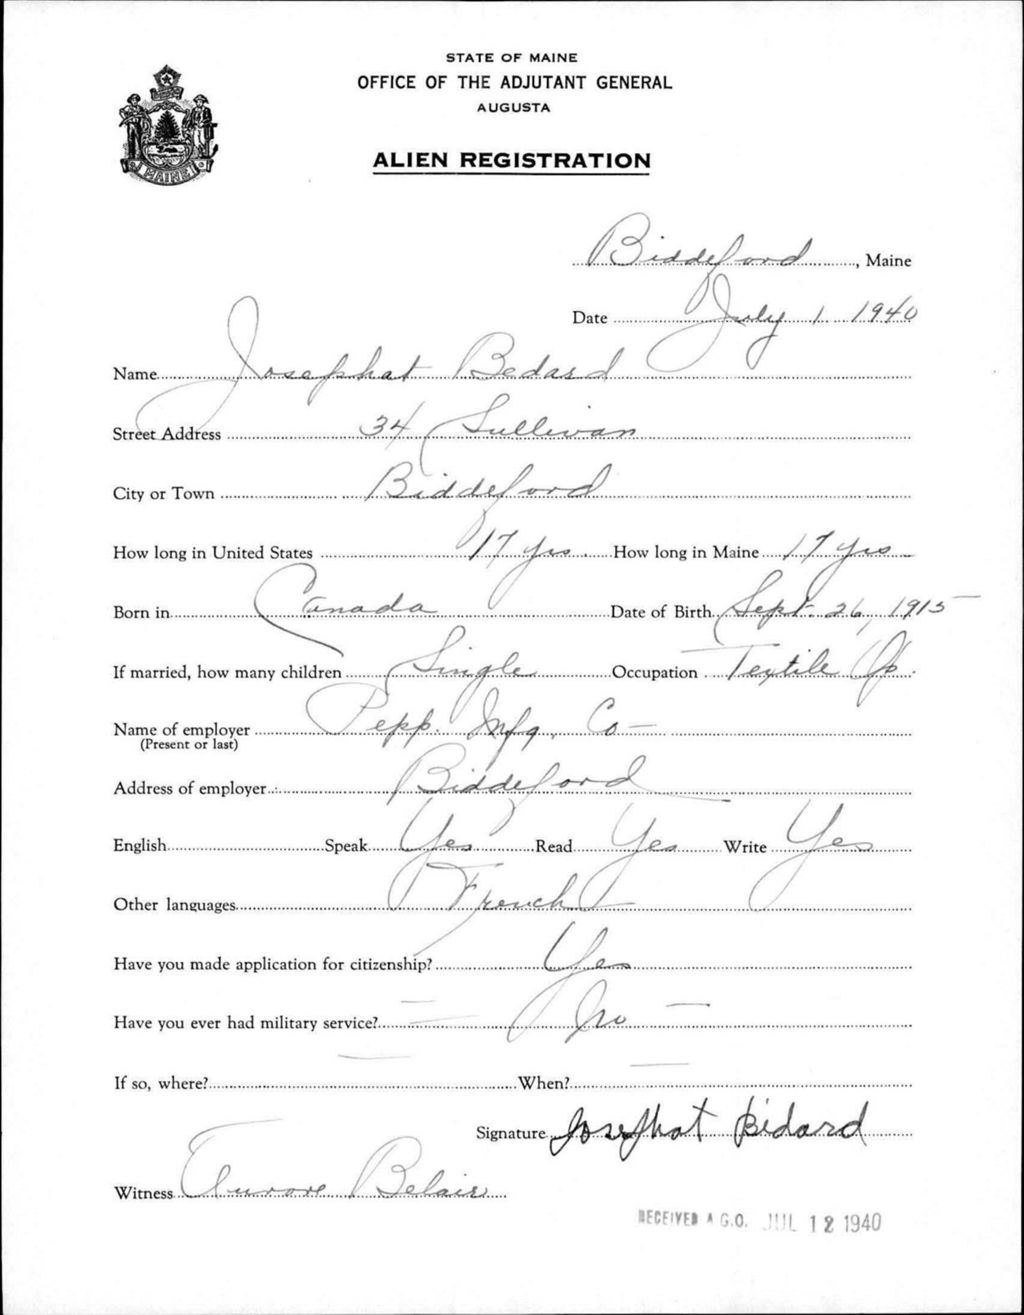 STATE OF MAINE
OFFICE OF THE ADJUTANT GENERAL
AUGUSTA
ALIEN REGISTRATION
MAINE
Biddeford, Maine
Date July 1 1940
Name Josephat Bedard
Street Address 34 Sullivan
City or Town Biddeford
How long in United States 17 yrs. How long in Maine 17 yrs
Born in Canada Date of Birth Sept. 26, 1915
If married, how many children Single Occupation Textile Op.
Name of employer Pepp. Mfg. Co
(Present or last)
Address of employer Biddeford
English Speak Yes Read Yes Write Yes
Other languages French
Have you made application for citizenship? Yes
Have you ever had military service? No
If so, where? When?
Signature Josephat Bédard
Witness Aurore Belair
RECEIVED A.G.O. JUL 12 1940